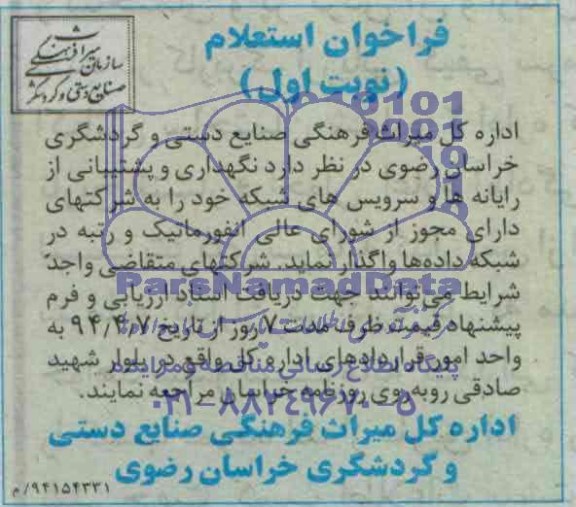 سازمان میراث فرهنگی
صنایع دستی و گردشگری
فراخوان استعلام
(نوبت اول)
اداره کل میراث فرهنگی صنایع دستی و گردشگری
خراسان رضوی در نظر دارد نگهداری و پشتیبانی از
رایانه ها و سرویس های شبکه خود را به شرکتهای
دارای مجوز از شورای عالی انفورماتیک و رتبه در
شبکه داده‌ها واگذار نماید. شرکتهای متقاضی واجد
شرایط می‌توانند جهت دریافت اسناد ارزیابی و فرم
پیشنهاد قیمت ظرف مدت ۷ روز از تاریخ ۹۴/۴/۷ به
واحد امور قراردادهای اداره کل واقع در بلوار شهید
صادقی روبه‌روی روزنامه خراسان مراجعه نمایند.
اداره کل میراث فرهنگی صنایع دستی
و گردشگری خراسان رضوی
۹۴۱۵۴۳۳۱/م
ParsNamadData
پایگاه اطلاع رسانی مناقصه و مزایده
۰۲۱-۸۸۳۴۹۶۷۰-۵